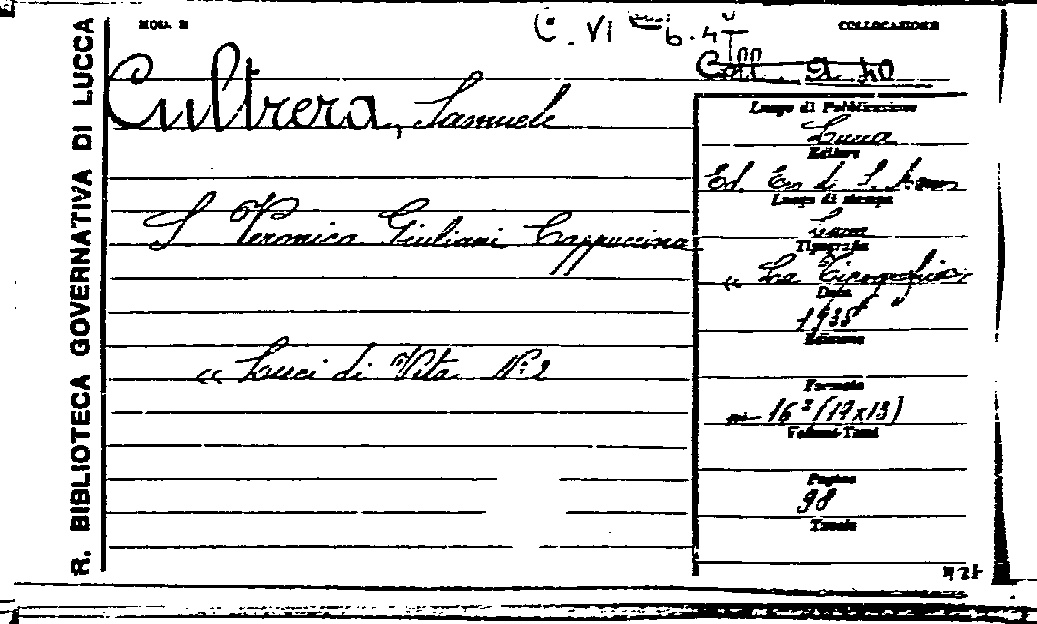 R. BIBLIOTECA GOVERNATIVA DI LUCCA
MOD. 2
C. VI 6. 4
COLLOCAZIONE
Coll. 21. 40
Cultrera, Samuele
S. Veronica Giuliani Cappuccina
« Luci di Vita N. 2
Luogo di Pubblicazione
Lucca
Editore
Ed. Eco di S.
Luogo di stampa
Lucca
Tipografia
« La Tipografica
Data
1935
Edizione
Formato
in 16° (17x13)
Volumi-Tomi
Pagine
98
Tavole